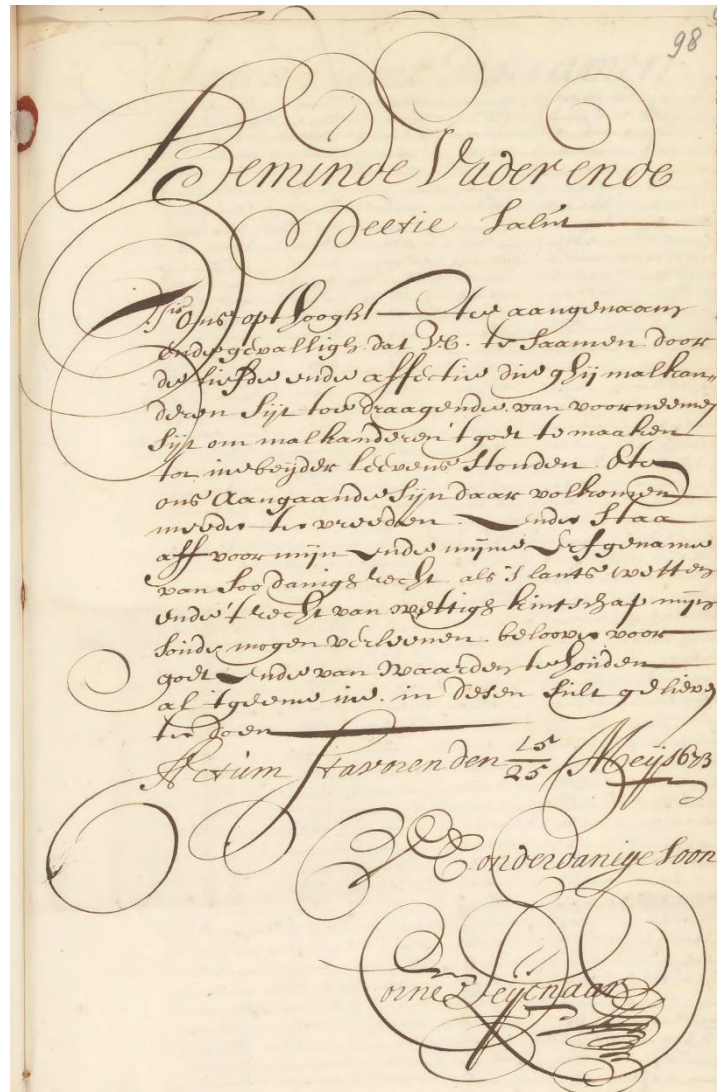 98
Beminde Vader ende
Peetie Salut
Tis ons op't hooghste aangenaam
ende gevalligh dat UE. te saamen door
de liefde ende affectie die ghij malkan-
deren sijt toe draagende van voorneemen
sijt om malkanderen 't goet te maaken
tot beijder leevens stonden
ons aangaande sijn daar volkomen
meede te vreeden. Ende staa
aff voor mijn ende mijne Erfgename
van soodanigh recht als 's lants wetten
ende 't recht van wettigh kintschap mijn
soude mogen verleenen. beloove voor
goet ende van waarden te houden
al 't geene in desen sult gelieven
te doen
Actum Stavoren den 15/25 Meij 1673
UE onderdanige Soon